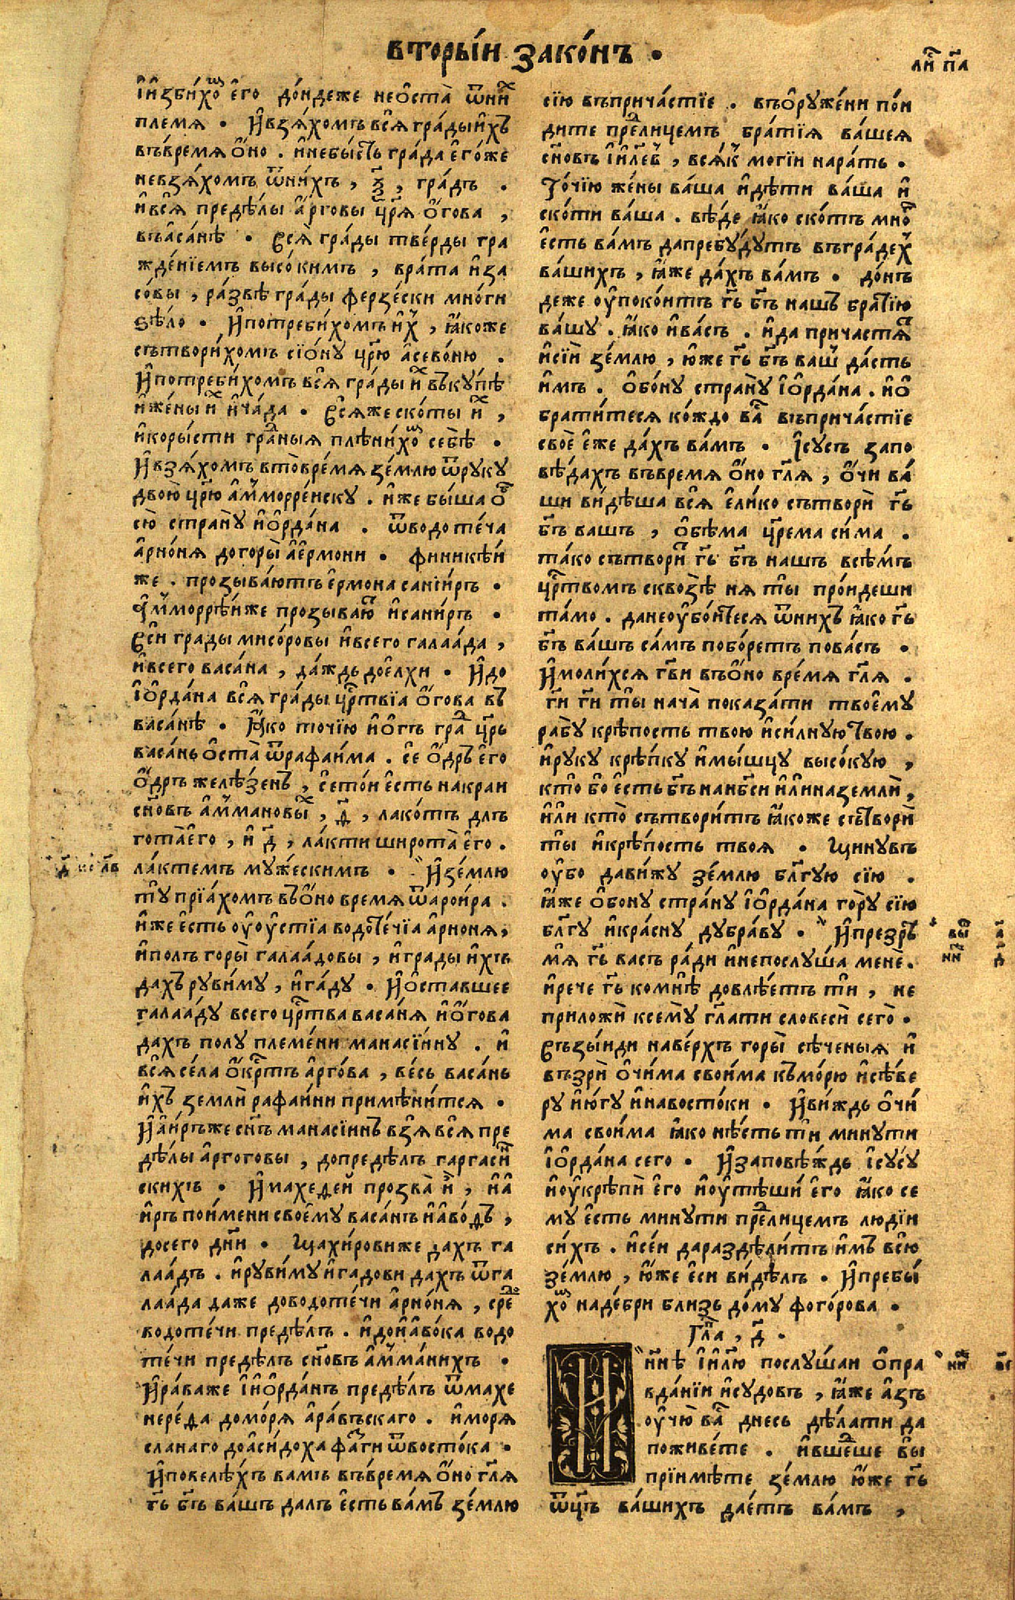 вторы́и зако́нъ .
ли҃ п҃а
И҆избихо҇ⷨ е҆го̀ до́ндеже не ѡ҆ста̀ ѿ ни́ⷯ
племѧ . И҆ взѧ́хомъ всѧ̀ гра́ды и҆́хъ
въ времѧ ѻ҆́но . и҆ не бы́сть гра́да е҆го́же
не взѧ́хомъ ѿ ни́хъ , ѯ҃ , гра́дъ .
и҆ всѧ̀ преде́лы а҆́рговы цр҃ѧ̀ ѻ҆́гова ,
въ васа́нѣ . Всѧ̀ гра́ды тве́рды гра
жде́нїемъ высо́кимъ , врата̀ и҆ за
со́вы , ра́звѣ гра́ды ферзе́ски мно́ги
ѕѣло̀ . И҆ потреби́хомъ и҆́ⷯ , ꙗ҆́коже
сътвори́хомъ сїѡ́ну цр҃ю̀ а҆сево́ню .
И҆ потреби́хомъ всѧ̀ гра́ды и҆́ⷯ въкꙋ́пѣ
и҆ же́ны и҆́ⷯ и҆ ча́да . Всѧ́же ско́ты и҆́ⷯ ,
и҆ коры́сти гра́ⷣныѧ плѣни́хоⷨ себѣ̀ .
И҆ взѧ́хомъ в то̀ вре́мѧ зе́млю ѿ рꙋкꙋ̀
двою̀ цр҃ю̀ а҆ммorре́искꙋ . и҆́же бы́ша ѻ҆б̾
сю̀ странꙋ̀ и҆ѻ҆рда́на . ѿ водоте́ча
а҆рно́нѧ до горы̀ а҆ермони . финикѣ́и
же . прозыва́ютъ е҆рмона санїиръ .
А҆мморрѣ́иже прозываⷮ и҆ санїръ .
Вси̑ гра́ды мисо́ровы и҆ всего̀ галаа́да ,
и҆ всего̀ васа́на , да́ждь до е҆лхи . И҆ до
І҆ѻ҆рда́на всѧ̀ гра́ды црⷭ҇твїа ѻ҆́гова въ
васа́нѣ . Ꙗ҆́ко то́чїю и҆ ѻ҆́гъ граⷣ цр҃ь
васа́нь ѡ҆ста̀ ѿ рафаи́ма . се ѻ҆́дръ е҆го̀
ѻ҆́дръ желѣ́зенъ , се то́и е҆́сть на краи
сн҃овъ а҆ммановы́ⷯ , д҃ , лако́тъ дль
гота̀ е҆го̀ , и҆ д҃ , ла́кти широта̀ е҆го̀ .
ла́ктемъ мꙋ́жескимъ . И҆ зе́млю
тꙋ̀ прїа́хомъ въ ѻ҆́но времѧ ѿ арои́ра .
и҆́же е҆́сть ꙋ҆ ꙋ҆́стїа водоте́чїа а҆рно́нѧ ,
и҆ по́лъ горы̀ галаа́довы , и҆ гра́ды и҆́хъ
да́хъ рꙋви́мꙋ , и҆ га́дꙋ . И҆ ѡ҆ста́вшее
галаа́дꙋ всего̀ црⷭ҇тва васа́нѧ и҆ ѻ҆́гова
да́хъ по́лꙋ племе́ни манасїи́нꙋ . и҆
всѧ̀ се́ла ѻ҆́крⷭ҇тъ а҆рго́ва , ве́сь васа́нь
и҆́хъ землѝ рафаи́ни примѣни́тсѧ .
И҆ а҆и́ръже сн҃ъ манасїинъ взѧ̀ всѧ̀ пре
де́лы а҆рго́говы , до предѣ́лъ гаргаси́н̾
скихъ . И҆ махедеи̑ прозва̀ и҆̀ , и҆ а҆
и́ръ по и҆́мени своемꙋ̀ васа́нъ и҆ аво́дъ ,
до сего̀ дн҃и . Щахи́ровиже да́хъ га
лаа́дъ . и҆ рꙋви́мꙋ и҆ га́дови да́хъ ѿ га
лаа́да даже до водоте́чи а҆рно́нѧ , среⷣ
водоте́чи предѣ́лъ . и҆ до и҆авѡ́ка водо
те́чи предѣ́лъ сн҃овъ а҆мма́нихъ .
И҆ ра́важе І҆ѻ҆рда́нъ предѣ́лъ ѿ махе
нере́да до мо́рѧ а҆ра́вьскаго . и҆ мо́рѧ
сла́наго до а҆сидо́ха фа́зги ѿ восто́ка .
И҆ повелѣ́хъ ва́мъ въ вре́мѧ ѻ҆́но гл҃ѧ
гь҃ бг҃ъ ва́шъ да́лъ е҆́сть ва́мъ зе́млю
сїю̀ въ прича́стїе . въѻ҆рꙋже́ни пои
ди́те преⷣ лице́мъ бра́тїѧ ва́шеѧ
сн҃овъ і҆и҃левъ , всѧ́къ могїи на ра́ть .
То́чїю же́ны ва́ша и҆ дѣ́ти ва́ша и҆
ско́ти ва́ша . вѣ́де ꙗ҆́ко ско́тъ мно́гъ
е҆́сть ва́мъ да пребꙋ́дꙋтъ въ градеⷯ
ва́шихъ , ꙗ҆́же да́хъ ва́мъ . донъ
деже ꙋ҆поко́итъ гь҃ бг҃ъ на́шъ бра́тїю
ва́шꙋ . ꙗ҆́ко и҆ ва́съ . и҆ да прича́стѧⷮ
и҆ сїи̑ зе́млю , ю҆́же гь҃ бг҃ъ ва́шъ да́стъ
и҆́мъ . ѡ҆бо́нꙋ странꙋ̀ І҆ѻ҆рда́на . и҆ ѻ҆
брати́тесѧ ко́ждо ва́ⷭ въ прича́стїе
своѐ е҆́же да́хъ ва́мъ . І҆сꙋсъ запо
вѣ́дахъ въ времѧ ѻ҆́но гл҃ѧ , ѻ҆́чи ва́
ши ви́дѣша всѧ̀ е҆ли́ко сътворѝ гь҃
бг҃ъ ва́шъ , ѻ҆бѣ́ма цр҃ема си́ма .
та́ко сътвори́ⷮ гь҃ бг҃ъ на́шъ всѣ́мъ
црⷭ҇твомъ сквозѣ̀ нѧ ты̀ про́идеши
та́мо . да не ꙋ҆бои́тесѧ ѿ ни́хъ ꙗ҆́ко гь҃
бг҃ъ ва́шъ са́мъ побо́ретъ по ва́съ .
И҆ моли́хсѧ гв҃и въ ѻ҆́но вре́мѧ гл҃ѧ .
ги҃ ги҃ ты̀ нача̀ показа́ти твоемꙋ̀
рабꙋ̀ крѣ́пость твою̀ и҆ си́лнꙋю твою̀ .
и҆ рꙋ́кꙋ крѣ́пкꙋ и҆ мы́шцꙋ высо́кꙋю ,
кто̀ бо е҆́сть бг҃ъ на нб҃си и҆ли на землѝ ,
и҆ли кто̀ сътвори́тъ ꙗ҆́коже сътворѝ
ты̀ и҆ крѣ́пость твоѧ̀ . Щинꙋвъ
ꙋ҆́бо да ви́жꙋ зе́млю блг҃ꙋю сїю̀ .
ꙗ҆́же ѡ҆бо́нꙋ стра́нꙋ І҆ѻ҆рда́на го́рꙋ сїю̀
блг҃ꙋ и҆ кра́снꙋ дꙋбра́вꙋ . И҆ презрⷬ҇ѣ
мѧ̀ гь҃ ва́съ ра́ди и҆ не послꙋ́ша менѐ .
и҆ рече гь҃ ко мнѣ̀ довлѣ́етъ тѝ , не
приложѝ к семꙋ̀ гл҃ати словесѝ сего̀ .
Възы́иди на ве́рхъ горы̀ сѣ́ченыѧ и҆
възрѝ ѻ҆чи́ма свои́ма к мо́рю и҆ сѣ́ве
рꙋ и҆ ю҆́гꙋ и҆ на восто́ки . И҆ ви́ждь ѻ҆чи́
ма свои́ма ꙗ҆́ко нѣ́сть тѝ минꙋ́ти
І҆ѻ҆рда́на сего̀ . И҆ заповѣ́ждь І҆сꙋсꙋ
и҆ ꙋ҆крѣпѝ е҆го̀ и҆ ꙋ҆тѣшѝ е҆го̀ ꙗ҆́ко се
мꙋ̀ е҆́сть минꙋ́ти преⷣ лице́мъ лю́дїи
си́хъ . и҆ се́и да раздѣ́литъ и҆́мъ всю̀
зе́млю , ю҆́же е҆сѝ ви́дѣлъ . И҆ пребы́
хоⷨ на де́бри бли́зь до́мꙋ фого́рова .
Гла̑ , д҃ .
Ны́нѣ і҆и҃лю послꙋ́шаи ѻ҆пра
вда́нїи и҆ сꙋдо́въ , ꙗ҆́же а҆́зъ
ꙋ҆чю̀ ва́ⷭ дне́сь дѣ́лати да
поживе́те . и҆ вшеⷣше вы
прїи́мѣте зе́млю ю҆́же гь҃
ѿц҃ъ ва́шихъ дае́тъ ва́мъ ,